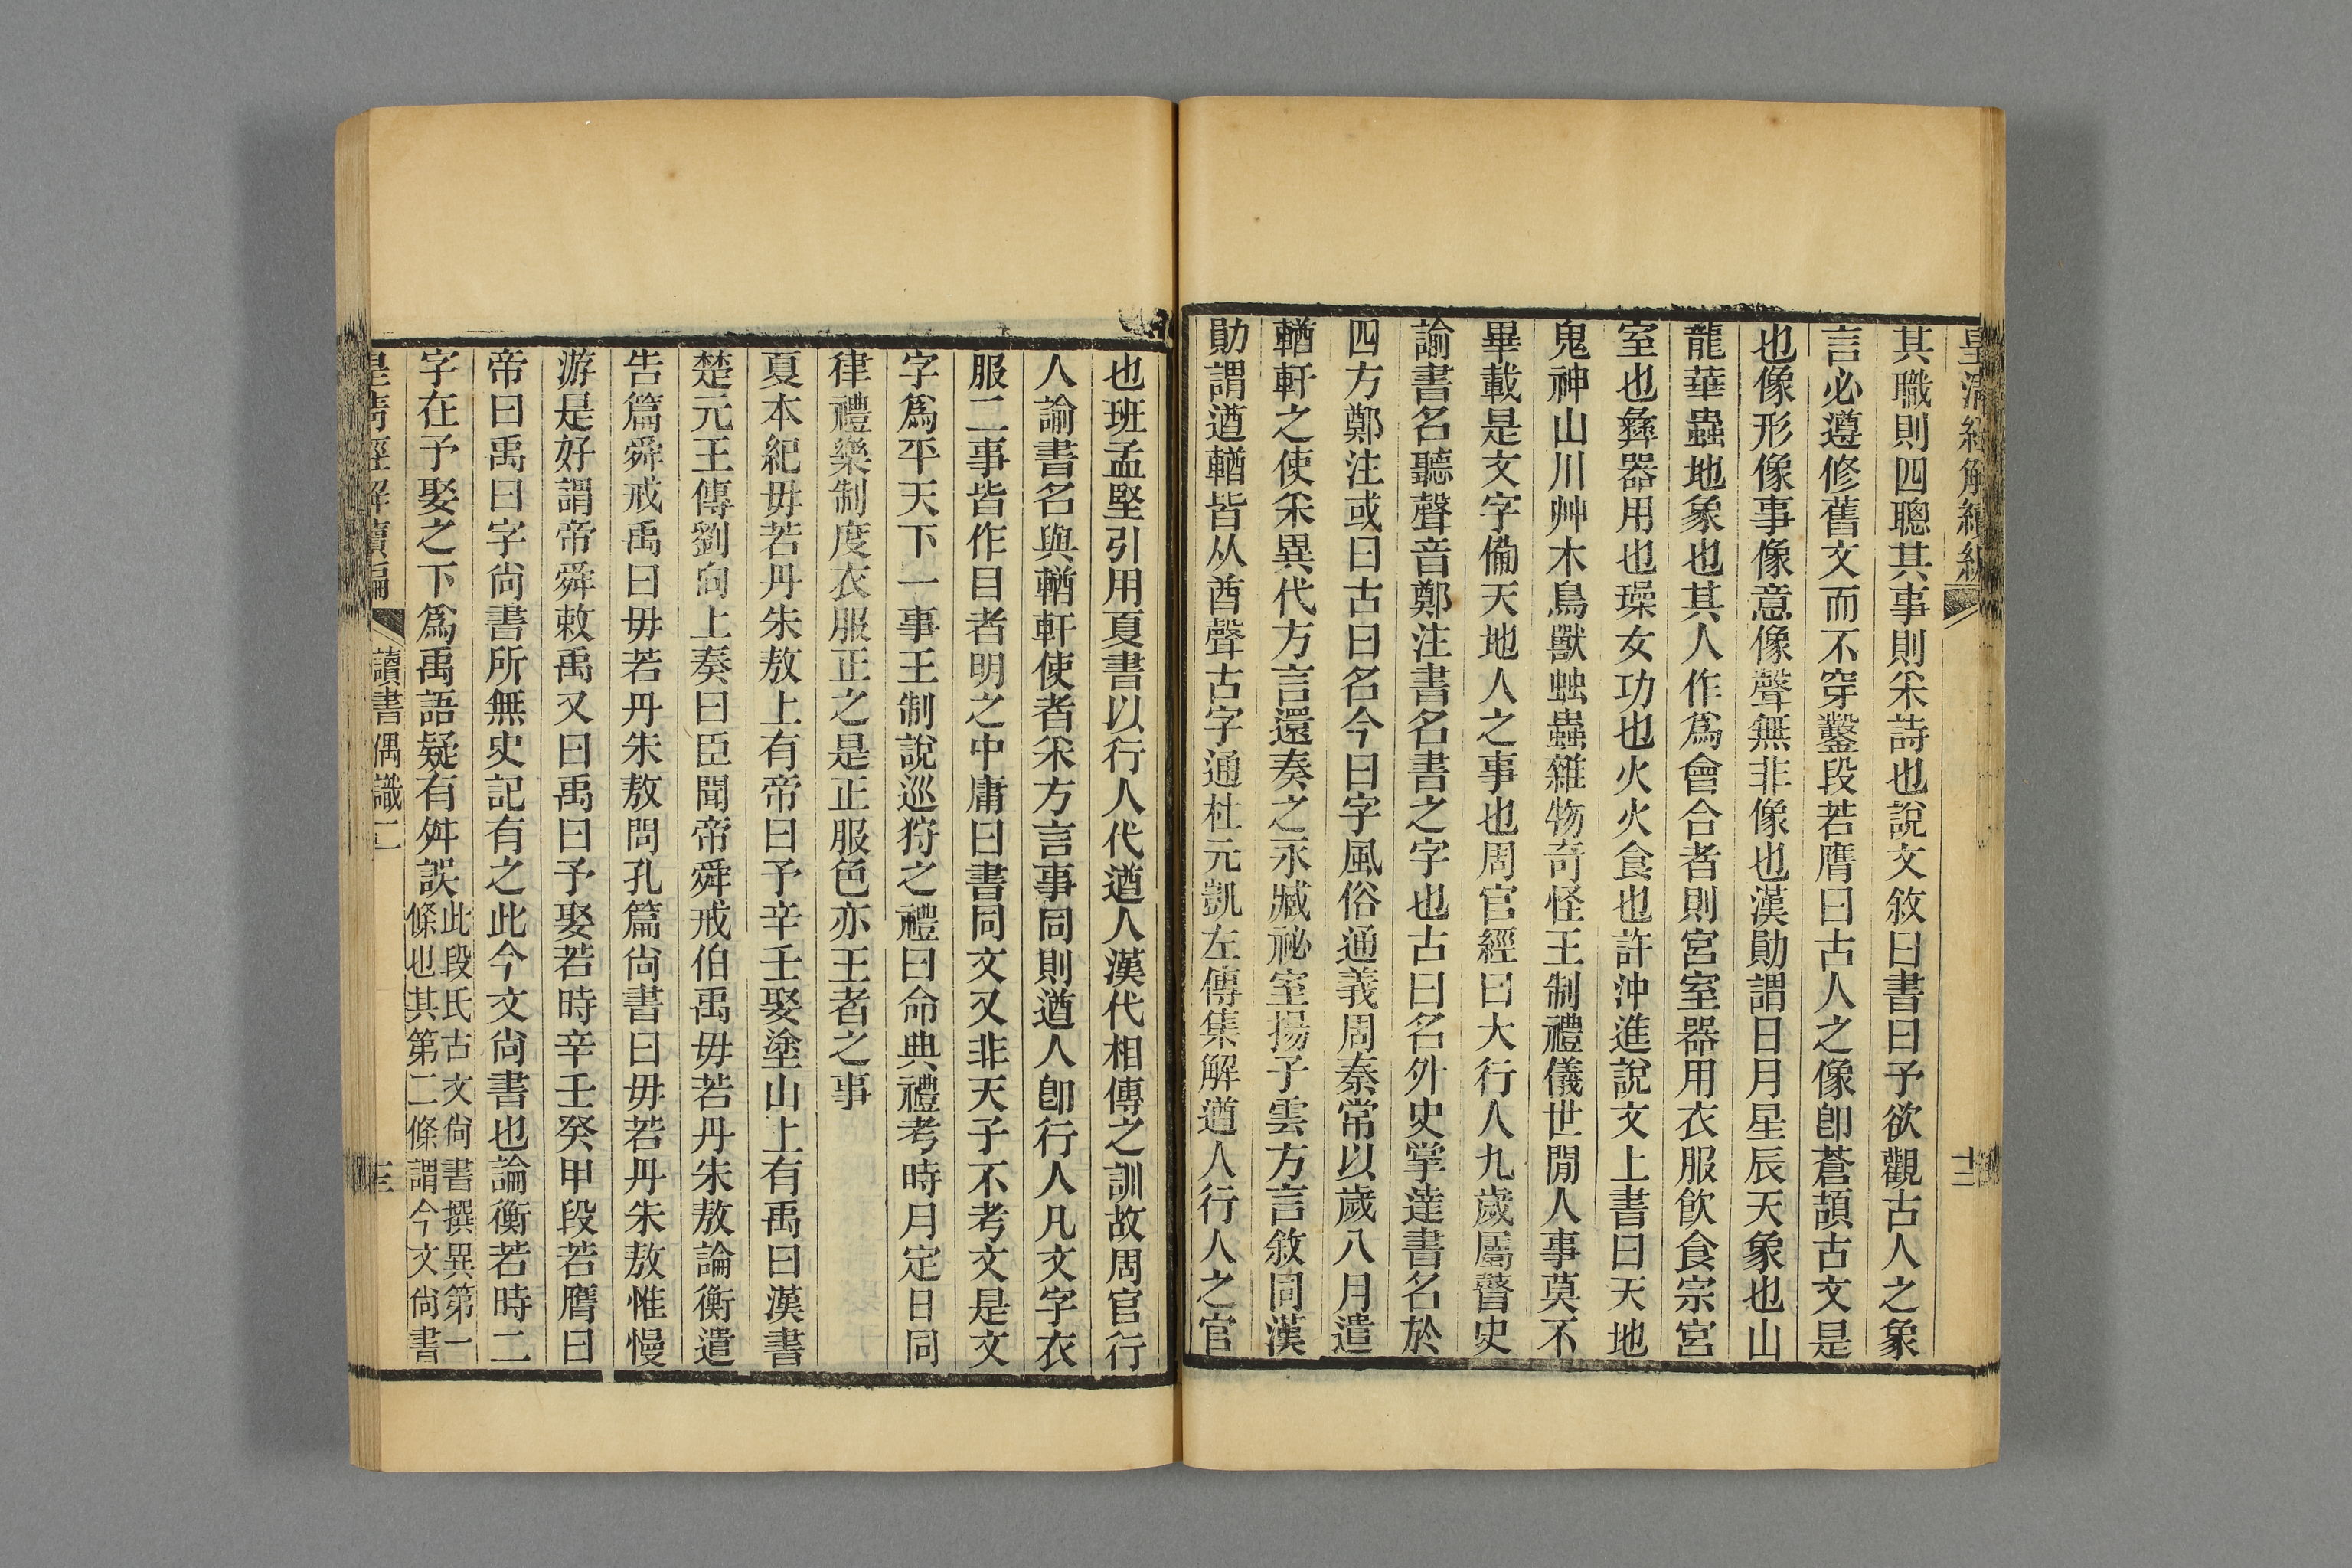 皇清經解續編
十二
其職則四聰其事則采詩也說文敘曰書曰予欲觀古人之象
言必遵修舊文而不穿鑿段若膺曰古人之像卽蒼頡古文是
也像形像事像意像聲無非像也漢勛謂日月星辰天象也山
龍華蟲地象也其人作爲會合者則宮室器用衣服飮食宗宮
室也彝器用也璪女功也火火食也許沖進說文上書曰天地
鬼神山川艸木鳥獸䖵蟲雜物奇怪王制禮儀世閒人事莫不
畢載是文字僃天地人之事也周官經曰大行人九歲屬瞽史
諭書名聽聲音鄭注書名書之字也古曰名外史掌達書名於
四方鄭注或曰古曰名今曰字風俗通義周秦常以歲八月遣
輶軒之使采異代方言還奏之永臧祕室揚子雲方言敘同漢
勛謂遒輶皆从酋聲古字通杜元凱左傳集解遒人行人之官
也班孟堅引用夏書以行人代遒人漢代相傳之訓故周官行
人諭書名與輶軒使者采方言事同則遒人卽行人凡文字衣
服二事皆作目者明之中庸曰書同文又非天子不考文是文
字爲平天下一事王制說巡狩之禮曰命典禮考時月定日同
律禮樂制度衣服正之是正服色亦王者之事
夏本紀毋若丹朱敖上有帝曰予辛壬娶塗山上有禹曰漢書
楚元王傳劉向上奏曰臣聞帝舜戒伯禹毋若丹朱敖論衡遣
告篇舜戒禹曰毋若丹朱敖問孔篇尙書曰毋若丹朱敖惟慢
游是好謂帝舜敕禹又曰禹曰予娶若時辛壬癸甲段若膺曰
帝曰禹曰字尙書所無史記有之此今文尙書也論衡若時二
字在予娶之下爲禹語疑有舛誤此段氏古文尙書撰異第一
條也其第二條謂今文尙書
皇淸經解續編
讀書偶識二
十三